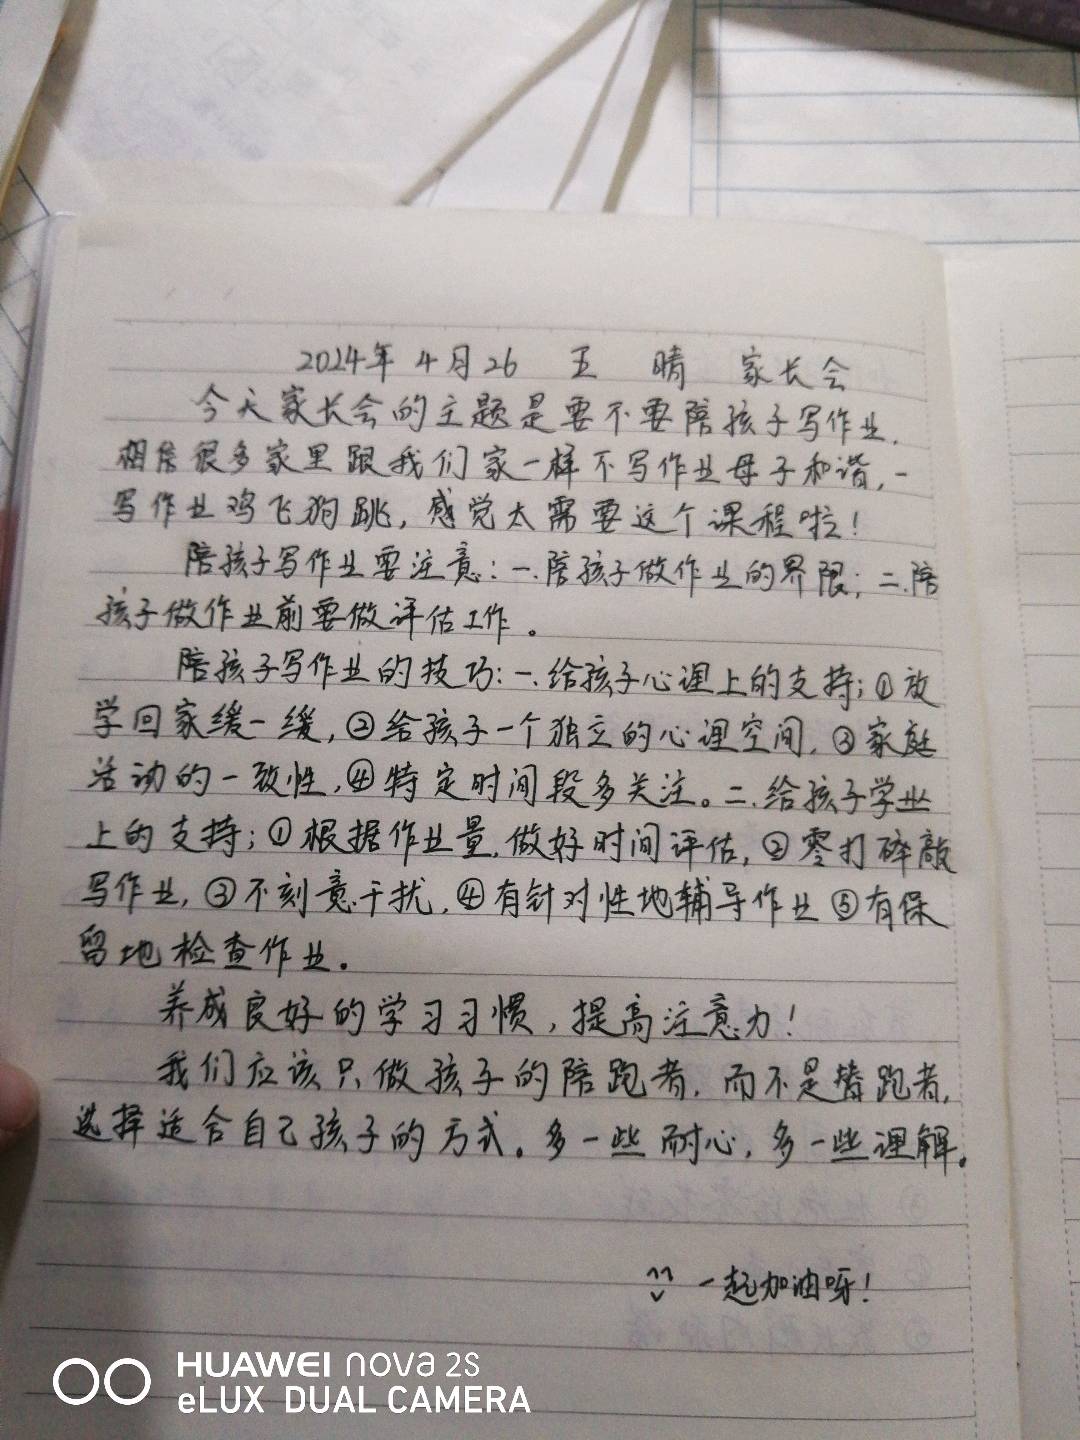 2024年 4月26 五 晴 家长会
今天家长会的主题是要不要陪孩子写作业.
相信很多家里跟我们家一样不写作业母子和谐,一
写作业鸡飞狗跳,感觉太需要这个课程啦!
陪孩子写作业要注意:一.陪孩子做作业的界限;二.陪
孩子做作业前要做评估工作。
陪孩子写作业的技巧:一.给孩子心理上的支持;①放
学回家缓一缓,②给孩子一个独立的心理空间,③家庭
活动的一致性,④特定时间段多关注。二.给孩子学业
上的支持;①根据作业量,做好时间评估,②零打碎敲
写作业,③不刻意干扰,④有针对性地辅导作业⑤有保
留地检查作业。
养成良好的学习习惯,提高注意力!
我们应该只做孩子的陪跑者,而不是替跑者,
选择适合自己孩子的方式。多一些耐心,多一些理解。
一起加油呀!
HUAWEI nova 2s
eLUX DUAL CAMERA